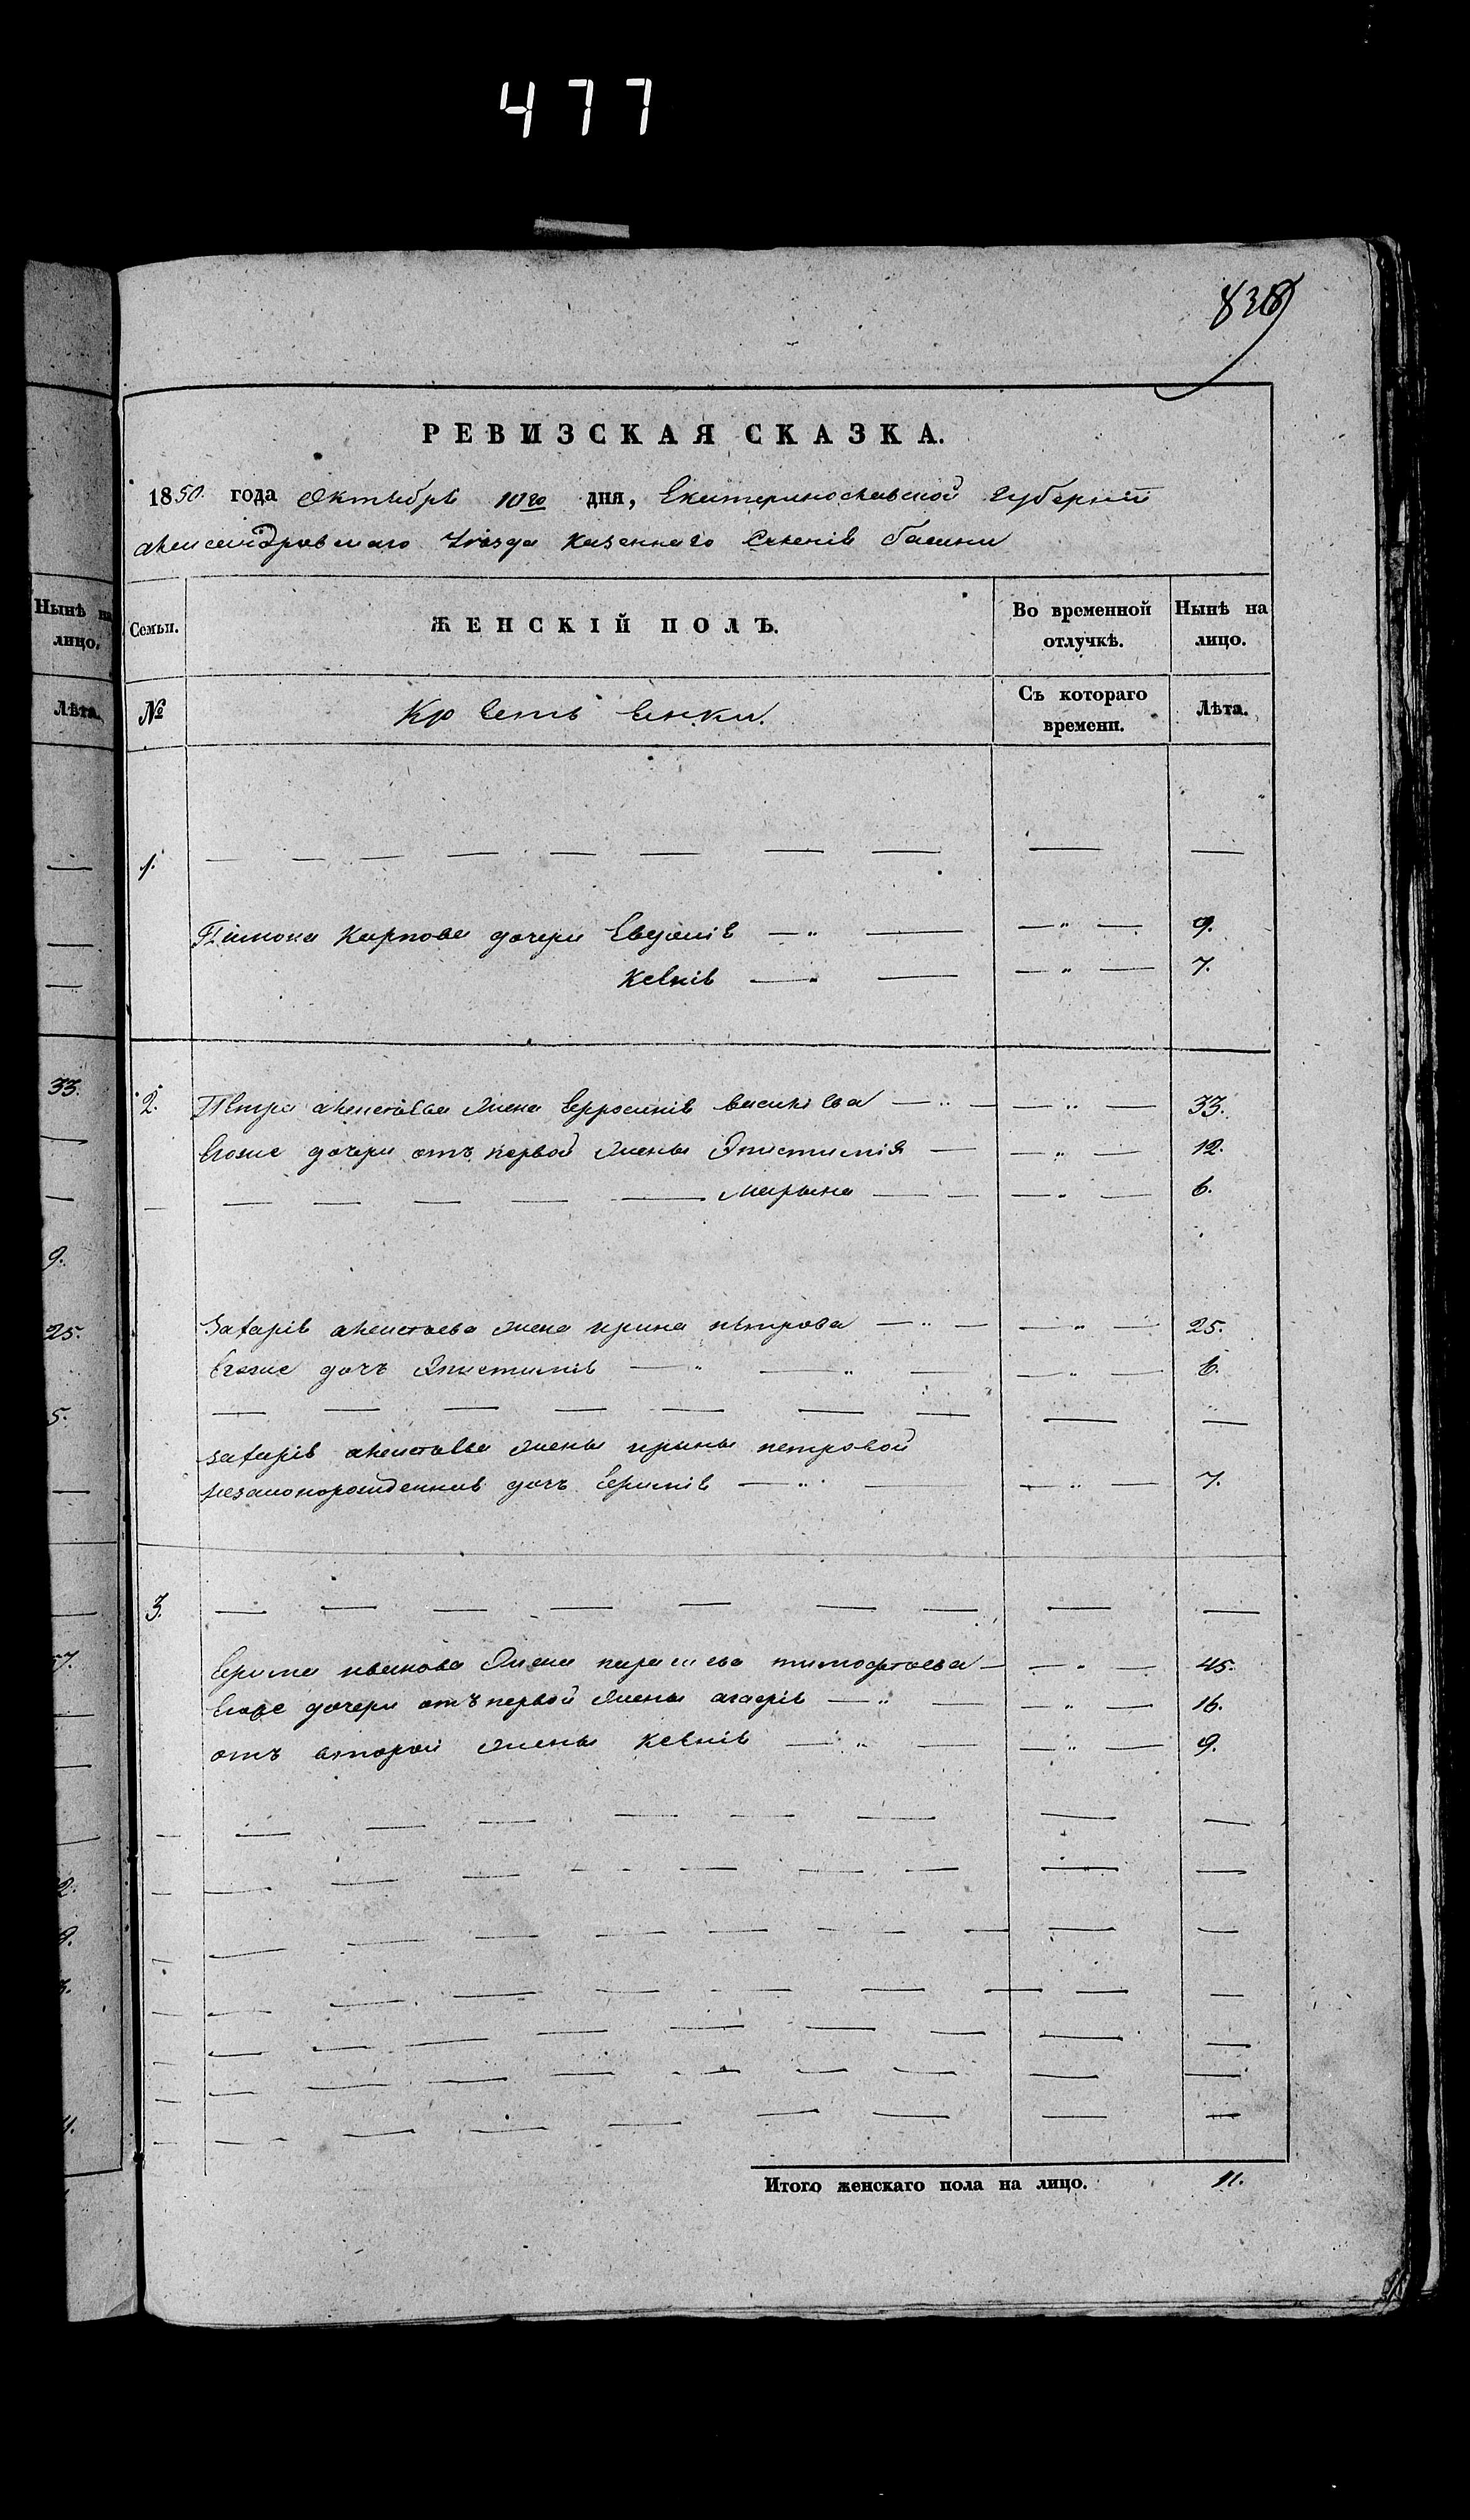 477
838
РЕВИЗСКАЯ СКАЗКА.
1850. года Октября 10го дня, Екатеринославской Губернии
александровскаго Уезда казеннаго Селенія
Нынѣ на лицо.
Лѣта.
Семьи.
ЖЕНСКІЙ ПОЛЪ.
Во временной отлучкѣ.
Нынѣ на лицо.
№
Крестьянки.
Съ котораго времени.
Лѣта.
1.
Пимона Карпова дочери Евдокія — „ — — „ — 9.
Ксенія — „ — — „ — 7.
33.
2. Петра алексѣева жена Ефросинія василіева — „ — — „ — 33.
Егоже дочери отъ первой жены Эпистимія — — „ — 12.
Марына — — „ — 6.
9.
25.
Захарія алексѣева жена ирина петрова — „ — — „ — 25.
Егоже дочъ Эпистимія — „ — „ — — „ — 6.
5.
захарія алексѣева жены ирины петровой
незаконорожденная дочъ — „ — — „ — 7.
3.
7.
иванова жена тимофѣева — — „ — 45.
Егоже дочери отъ первой жены агафія — „ — — „ — 16.
отъ второй жены Ксенія — „ — — „ — 9.
2.
9.
3.
11.
Итого женскаго пола на лицо. 11.